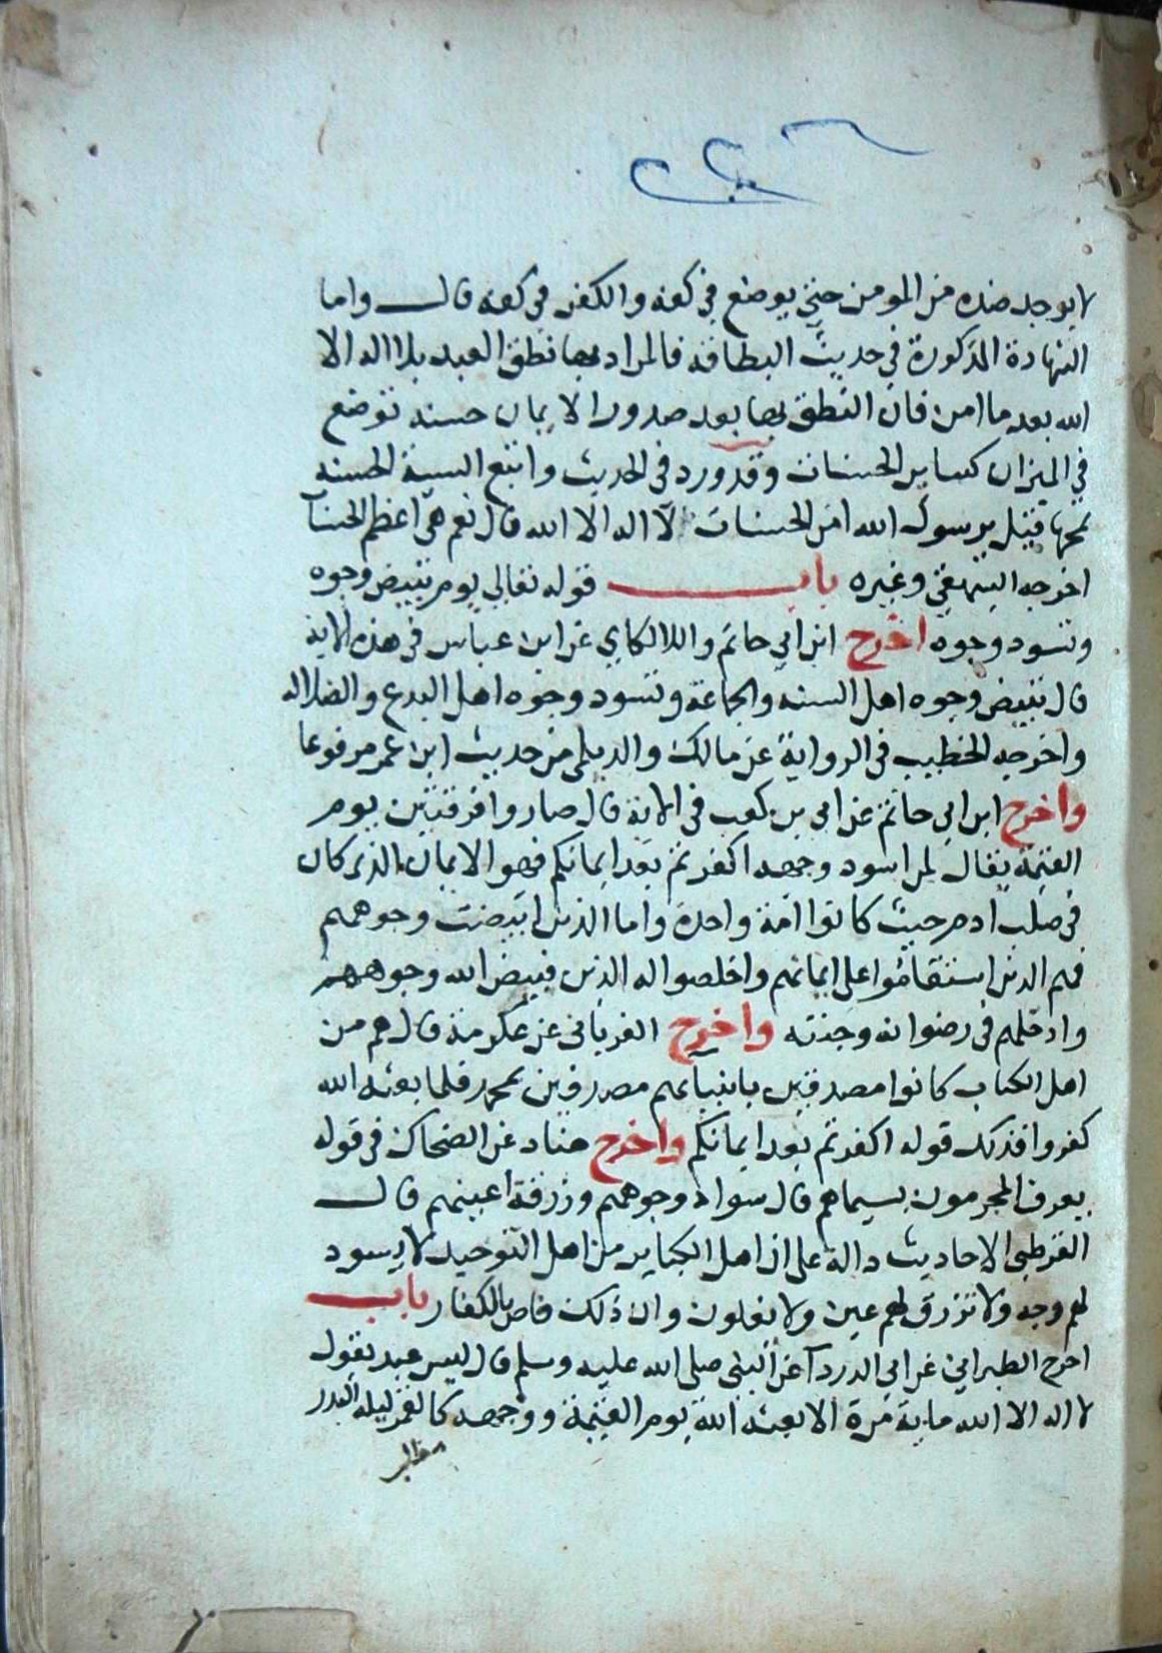 لا يوجد ضده من المومن حتى يوضع في كفه والكفر في كفه قال واما
الشهادة المذكورة في حديث البطاقه فالمراد بها نطق العبد بلا اله الا
الله بعد ما امن فان النطق بها بعد صدور الايمان حسنه توضع
في الميزان كساير الحسنات وقد ورد في الحديث واتبع السيئة الحسنه
تمحها قيل يرسول الله امن الحسنات لا اله الا الله قال نعم هي اعظم الحسنات
اخرجه البيهقي وغيره باب قوله تعالي يوم تبيض وجوه
وتسود وجوه اخرج ابن ابي حاتم واللالكاي عن ابن عباس في هذه الاية
قال تبيض وجوه اهل السنه والجماعة وتسود وجوه اهل البدع والضلاله
واخرجه الخطيب في الرواية عن مالك والديلمي من حديث ابن عمر مرفوعا
واخرج ابن ابي حاتم عن ابي بن كعب في الاية قال صاروا فرقتين يوم
القيمة يقال لمن اسود وجهه اكفرتم بعد ايمانكم فهو الايمان الذي كان
في صلب ادم حيث كانوا امة واحدة واما الذين ابيضت وجوههم
فهم الذين استقاموا على ايمانهم واخلصوا له الدين فبيض الله وجوههم
وادخلهم في رضوانه وجنته واخرج الفريابي عن عكرمة قال هم من
اهل الكتاب كانوا مصدقين بانبيائهم مصدقين بمحمد فلما بعثه الله
كفروا فذلك قوله اكفرتم بعد ايمانكم واخرج هناد عن الضحاك في قوله
يعرف المجرمون بسيماهم قال سواد وجوههم وزرقة اعينهم قال
القرطبي الاحاديث دالة على ان اهل الكباير من اهل التوحيد لا يسود
لهم وجه ولا تزرق لهم عين ولا يغلون وان ذلك خاص بالكفار باب
اخرج الطبراني عن ابي الدردآ عن النبي صلى الله عليه وسلم قال ليس عبد يقول
لا اله الا الله ماية مرة الا بعثه الله يوم القيمة ووجهه كالقمر ليلة البدر